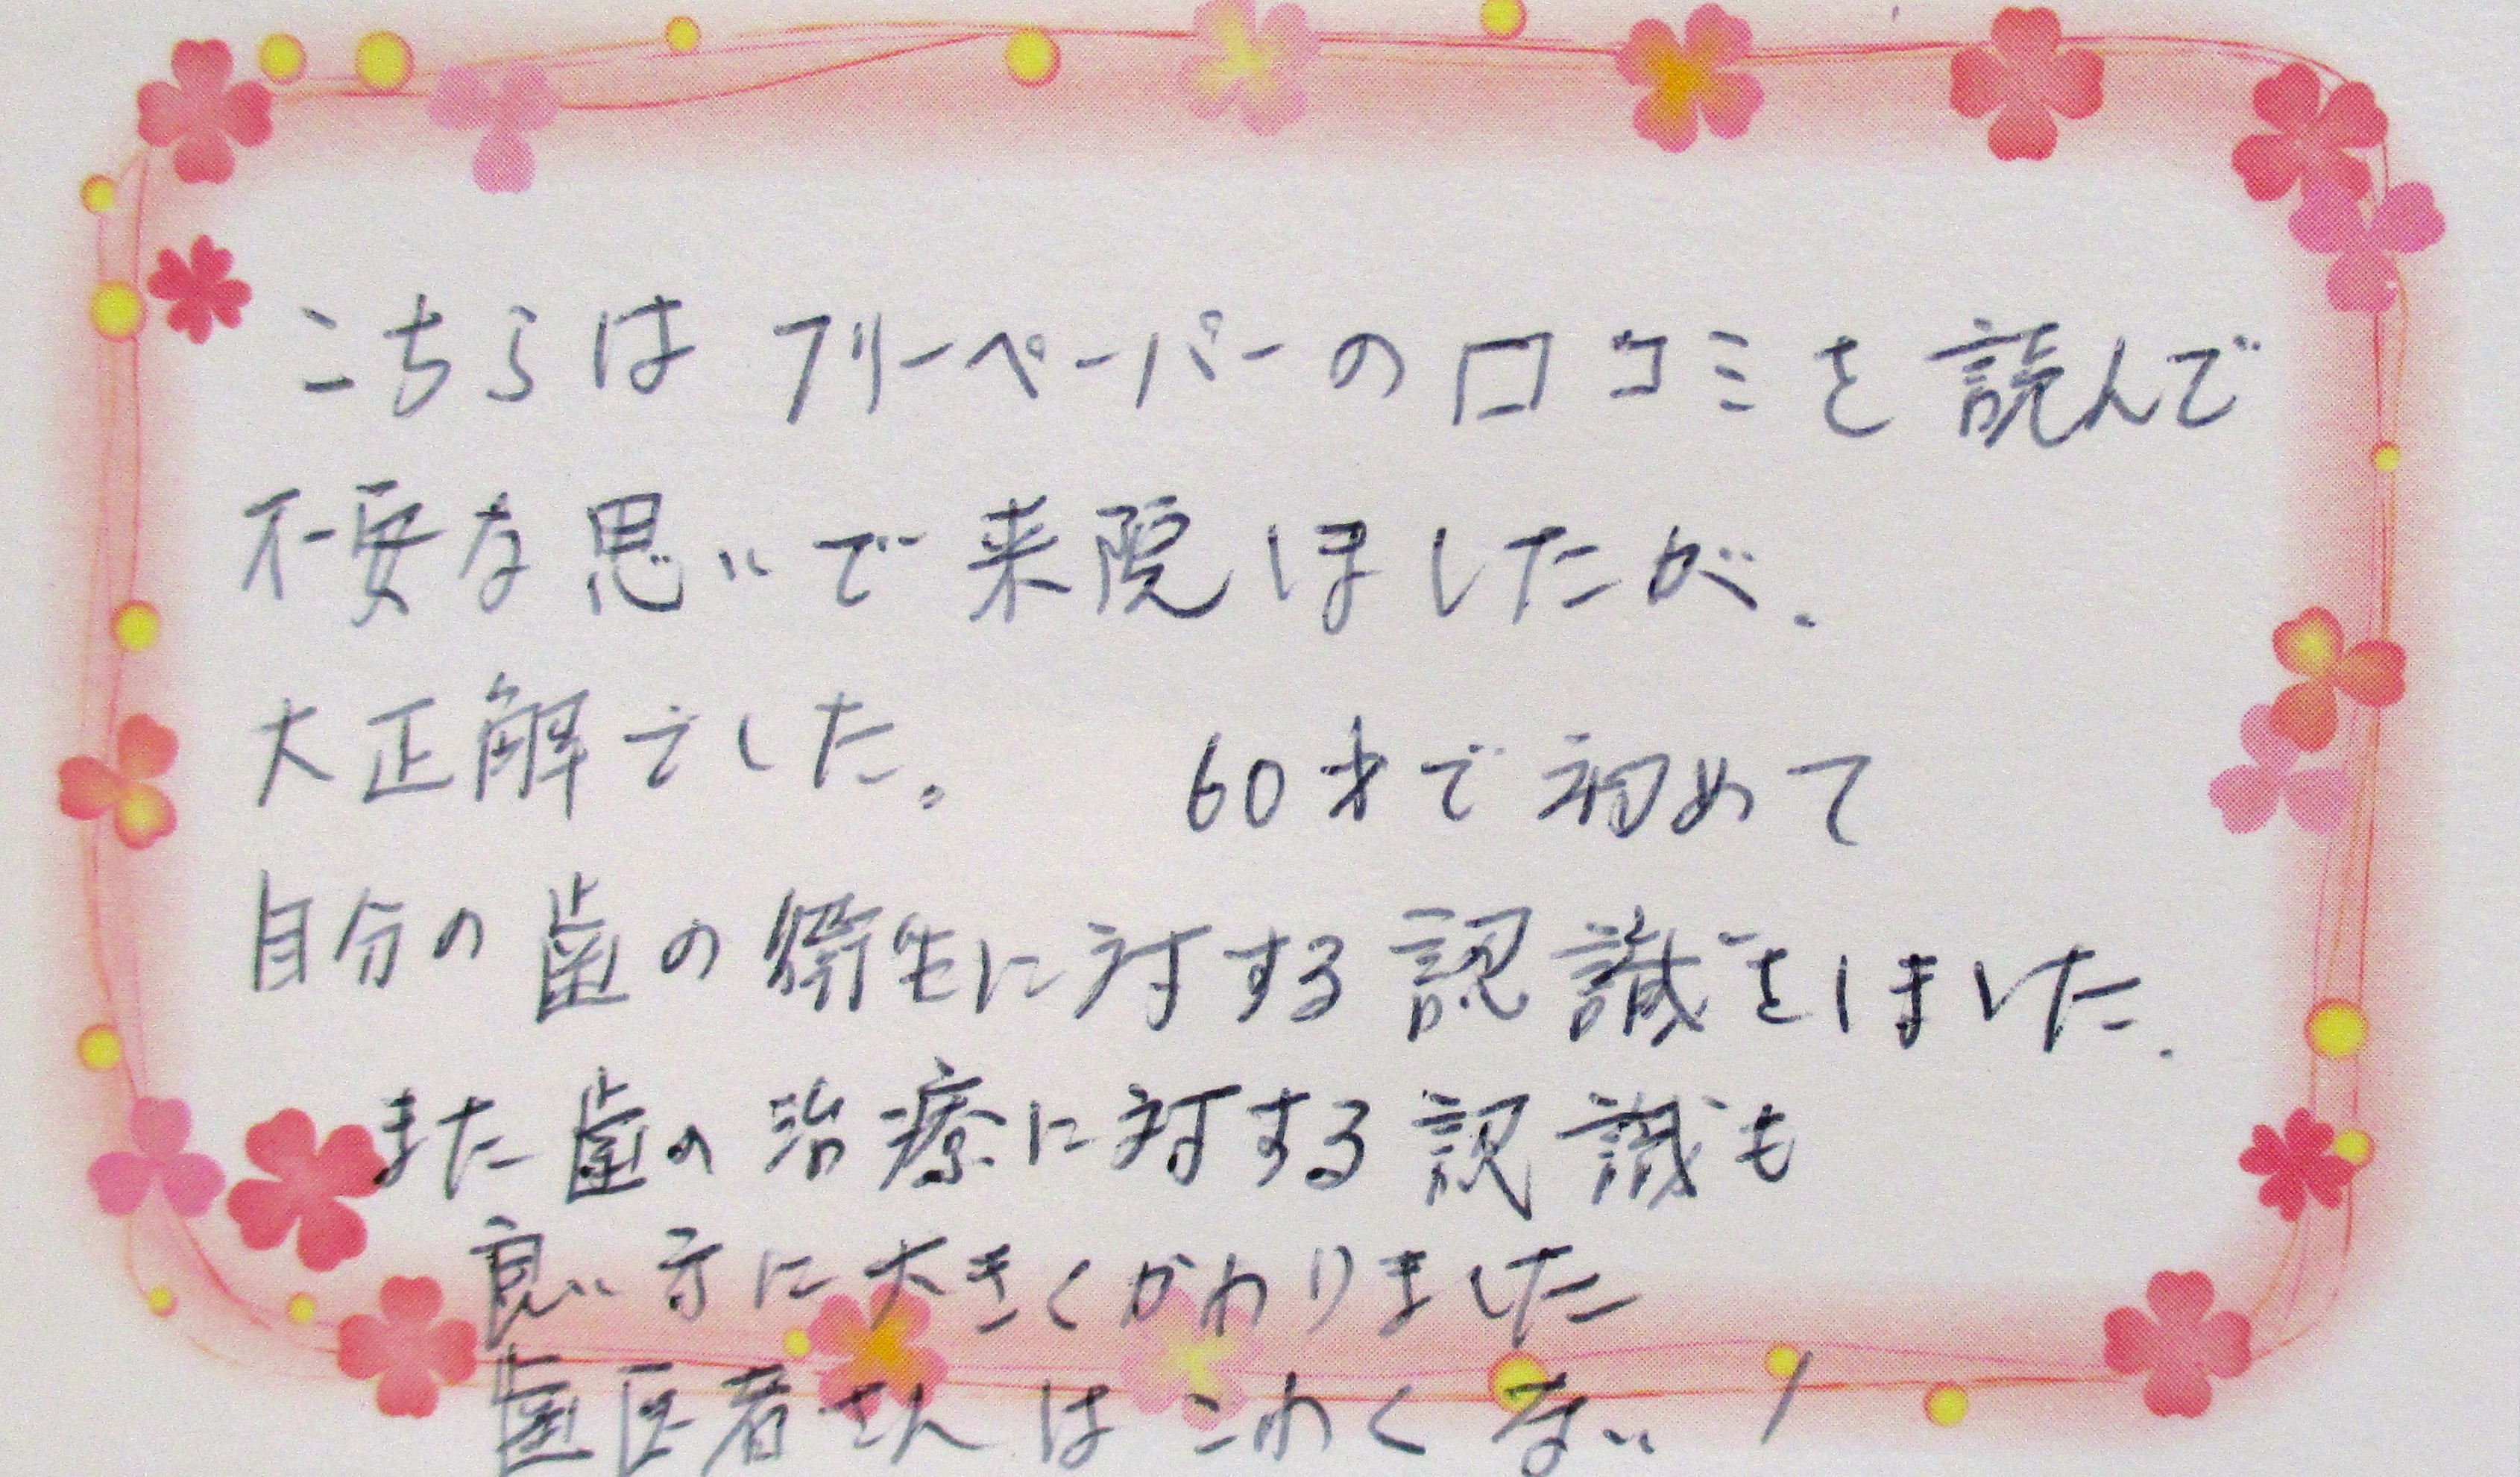 こちらは フリーペーパーの口コミを読んで
不安な思いで来院しましたが、
大正解でした。 60才で初めて
自分の歯の衛生に対する認識をしました.
また歯の治療に対する認識も
良い方に大きくかわりました
歯医者さんはこわくない!